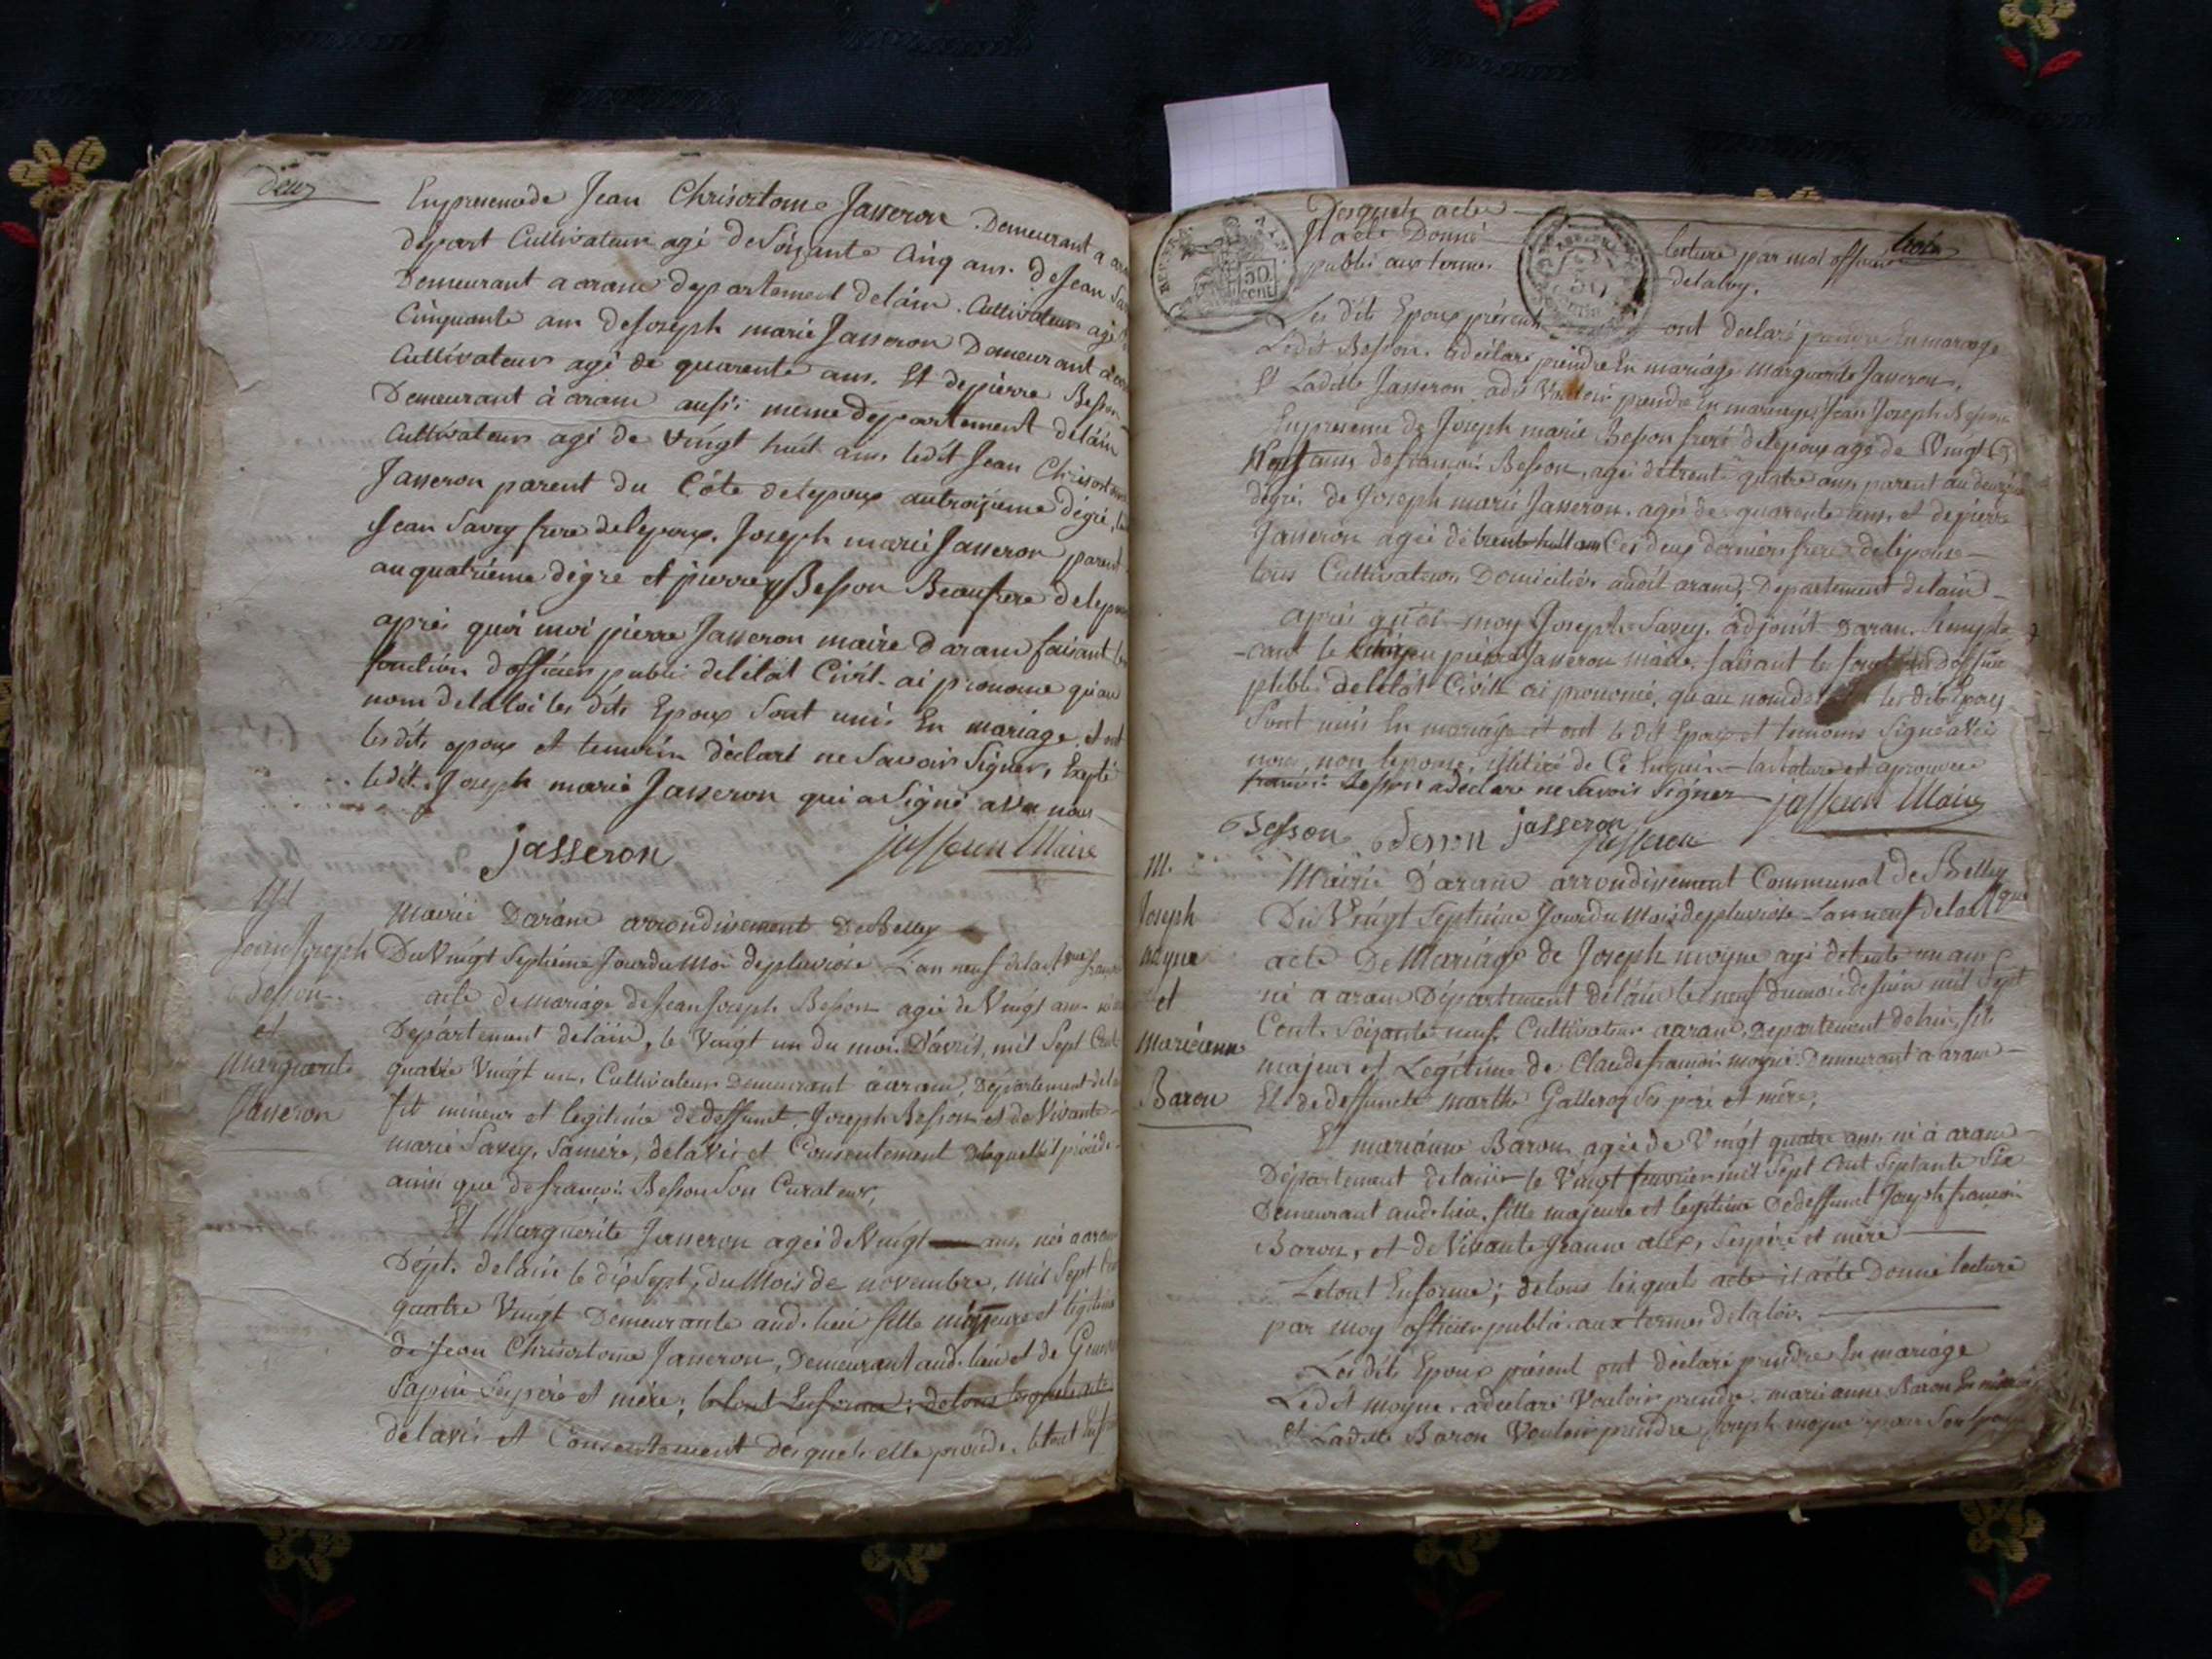 deux
En presence de Jean Chrisostome Jasseron. Demeurant a
depart Cultivateur agé de Soixante Cinq ans. de Jean
Demeurant a aranc departement delain. Cultivateur agé
Cinquante ans de Joseph marie Jasseron Demeurant a
Cultivateur agé de quarente ans. Et de pierre Besson
Demeurant à aranc aussi meme departement delain
Cultivateur agé de Vingt huit ans ledit Jean Chrisostome
Jasseron parent du Côté delepoux au troizieme dégré,
Jean Savey frere delepoux. Joseph marie Jasseron parent
au quatrième dégre et pierre Besson Beaufrere
après quoi moi pierre Jasseron maire Daranc faisant
fonction dofficier public deletat Civil. ai prononce qu'au
nom delaloi les dits Epoux Sont unis En mariage, et ont
lesdits epoux et temoins déclaré ne Savoir Signer, Exepté
ledit. Joseph marie Jasseron qui a Signé avec nous
jasseron jasseron Maire
M
Jean Joseph
Besson
et
Marguerite
Jasseron
Mairie Daranc arrondissement De Belley
Du Vingt Septiéme Jour du Moi depluviose L'an neuf dela
acte de mariage de Jean Joseph Besson agé de Vingt ans
Departement delain, le Vingt un du mois D'avril, mil Sept Cent
quatre Vingt un, Cultivateur Demeurant àaranc, Departement
fils mineur et legitime de deffunct Joseph Besson et de Vivante
marie Savey, Samére, delavis et Consentement procéde
ainsi que de françois Besson Son Curateur,
Et Marguerite Jasseron agée de Vingt ans, née a aranc
Dépt. delain le dix Sept, du Mois de novembre, mil Sept Cent
quatre Vingt Demeurante aud. lieu fille mineure et légitime
de Jean Chrisostome Jasseron, Demeurant aud. lieu et de
Sapin Ses pére et mére; le tout Enforme; detous lesquels acte
delavis et Consentement desquels elle procéde. le tout
trois
Desquels acte
Il a été Donné lecture par moi officier
public aux termes delaloy.
50
cent
Les dits Epoux présent ont declaré prendre En mariage
Ledit Besson. adéclaré prendre En mariage marguerite Jasseron,
Et Ladite Jasseron adit Vouloir prendre En mariage, Jean Joseph Besson
En presence de Joseph marie Besson frere delepoux agé de Vingt
Neuf ans, defrançois Besson, agé detrente quatre ans, parent au deuxieme
dégré. de Joseph marie Jasseron. agé de quarente ans, et depierre
Jasseron agé de trente huit ans Ces deux derniers freres delépouse
tous Cultivateurs Domiciliés audit aranc, Departement delain
après quoi moy Joseph Savey, adjoint Daranc. Remplа
-cant le Citoyen pierre Jasseron maire, faisant les fonctions dofficier
public deletat Civil ai prononcé, qu'au nom les dits Epoux
Sont unis En mariage et ont le dit Epoux et temoins Signé avec
nous, non lepouse, de Ce Enquis la rature est aprouvée
françois Besson adeclaré ne Savoir Signer
jasseron Maire
Besson Besson jasseron jasseron
M.
Joseph
moyne
et
Marieanne
Baron
Mairie D'aranc arrondissement Communal de Belley
Du Vingt Septiéme Jour du Mois depluviose Lan neuf dela
acte De Mariage de Joseph moyne agé detrente un ans
né a aranc Département delain le neuf dumois de juin mil Sept
Cent Soixante neuf, Cultivateur aaranc, Departement delain, fils
majeur et Légitime de Claude françois moyne Demeurant a aranc
Et dedeffuncte marthe Galleroz Ses pére et mére,
Et marianne Baron agée de Vingt quatre ans, né à aranc
Département delain le Vingt fevrier mil Sept Cent Septante Six
Demeurant aud. lieu, fille majeure et legitime Dedeffunct Joseph françois
Baron, et de Vivante Jeanne alex, Ses pére et mére
Le tout Enforme; detous lesquels acte il aété Donné lecture
par moy officier public aux termes delaloi.
Les dits Epoux présent ont déclaré prendre En mariage
Ledit moyne. adeclaré Vouloir prendre. marieanne Baron En mariage
Et Ladite Baron Vouloir prendre Joseph moyne pour Son Epoux